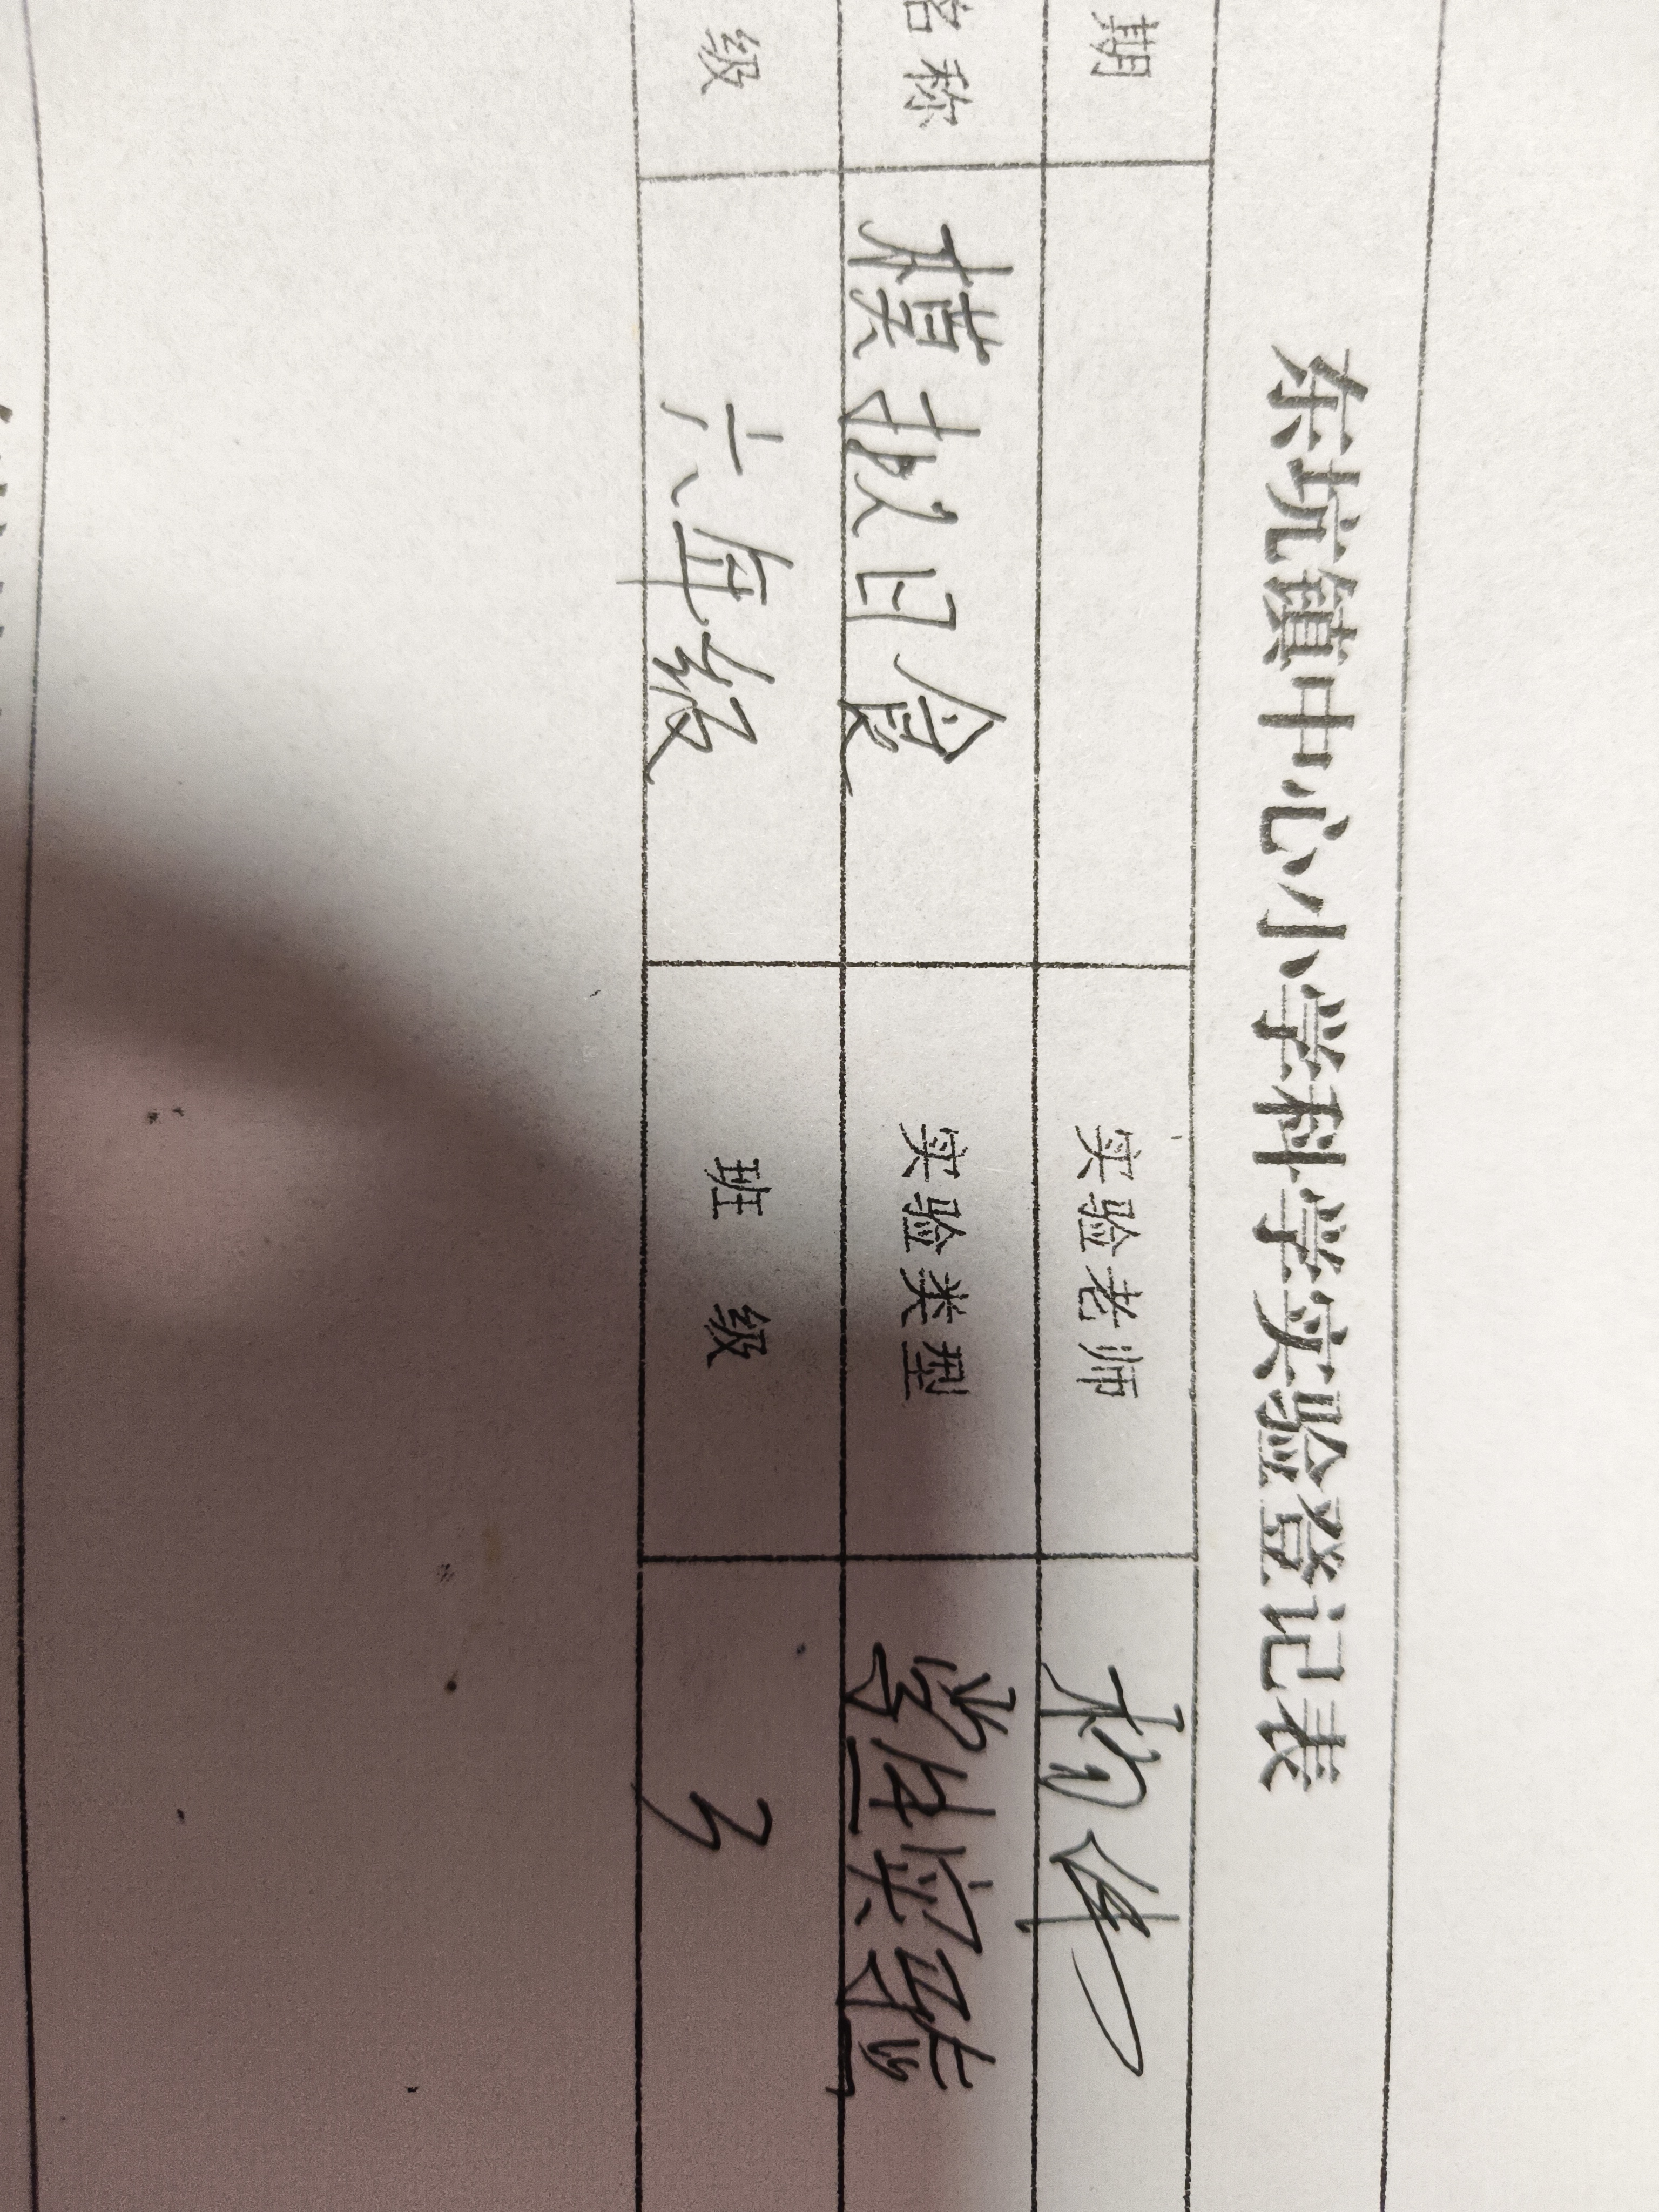 东坑镇中心小学科学实验登记表
期 实验老师
名称 模拟日食 实验类型 学生实验
级 六年级 班 级 3